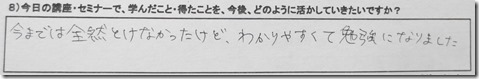 8)今日の講座・セミナーで、学んだこと・得たことを、今後、どのように活かしていきたいですか?
今までは全然とけなかったけど、わかりやすくて勉強になりました